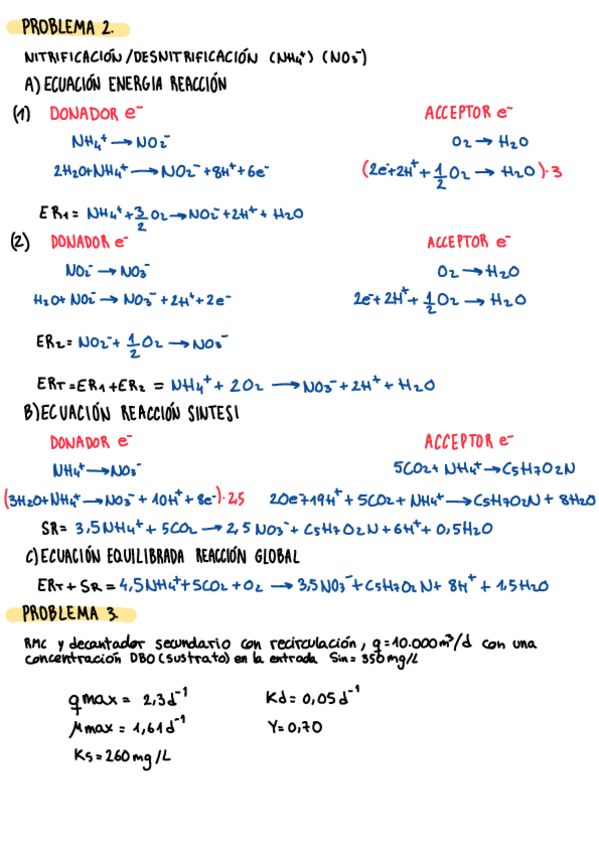 PROBLEMA 2.
NITRIFICACIÓN/DESNITRIFICACIÓN (NH4+) (NO3-)
A) ECUACIÓN ENERGIA REACCIÓN
(1) DONADOR e- ACCEPTOR e-
NH4+ → NO2- O2 → H2O
2H2O+NH4+ → NO2- + 8H+ + 6e- (2e-+2H+ + 1/2 O2 → H2O)·3
ER1 = NH4+ + 3/2 O2 → NO2- + 2H+ + H2O
(2) DONADOR e- ACCEPTOR e-
NO2- → NO3- O2 → H2O
H2O+ NO2- → NO3- + 2H+ + 2e- 2e-+ 2H+ + 1/2 O2 → H2O
ER2 = NO2- + 1/2 O2 → NO3-
ERT = ER1 + ER2 = NH4+ + 2O2 → NO3- + 2H+ + H2O
B) ECUACIÓN REACCIÓN SINTESI
DONADOR e- ACCEPTOR e-
NH4+ → NO3- 5CO2+ NH4+ → C5H7O2N
(3H2O+NH4+ → NO3- + 10H+ + 8e-)·2,5 20e-+19H+ + 5CO2 + NH4+ → C5H7O2N + 8H2O
SR= 3,5NH4+ + 5CO2 → 2,5 NO3- + C5H7O2N + 6H+ + 0,5H2O
C) ECUACIÓN EQUILIBRADA REACCIÓN GLOBAL
ERT + SR = 4,5NH4+ + 5CO2 + O2 → 3,5NO3- + C5H7O2N + 8H+ + 1,5H2O
PROBLEMA 3.
RMC y decantador secundario con recirculación, q=10.000m³/d con una
concentración DBO (sustrato) en la entrada Sin= 350mg/L
qmax = 2,3d-1 Kd= 0,05d-1
μmax = 1,61d-1 Y=0,70
Ks=260mg/L